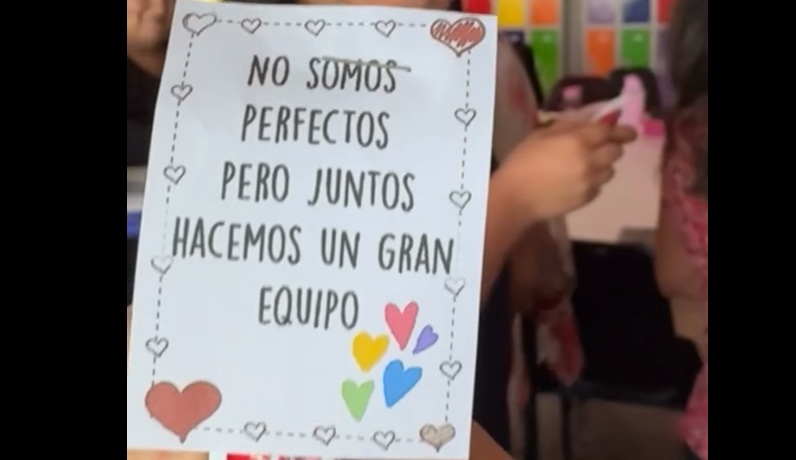 NO SOMOS
PERFECTOS
PERO JUNTOS
HACEMOS UN GRAN
EQUIPO